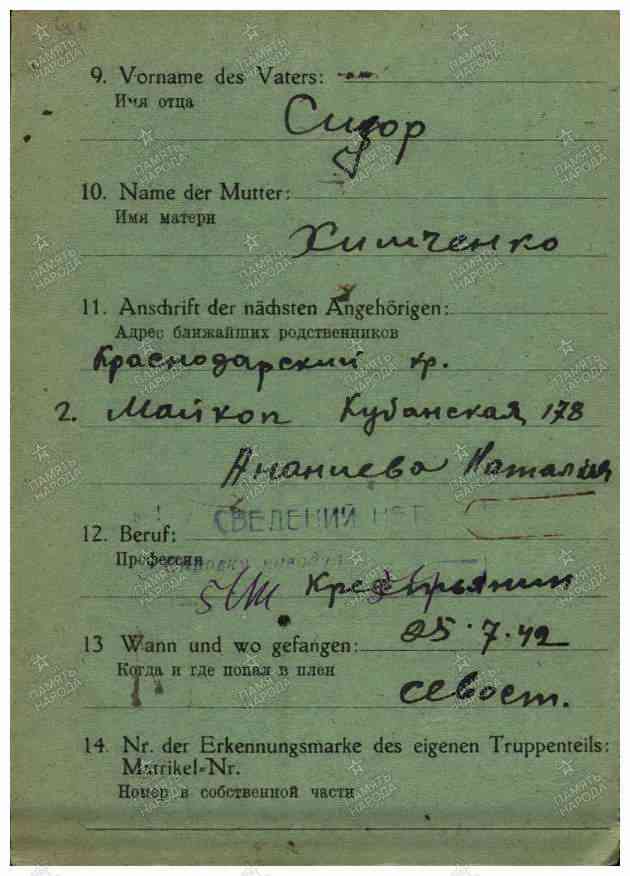 9. Vorname des Vaters:
Имя отца
Сидор
10. Name der Mutter:
Имя матери
Химченко
11. Anschrift der nächsten Angehörigen:
Адрес ближайших родственников
Краснодарский кр.
г. Майкоп Кубанская 178
Ананиева Наталия
СВЕДЕНИЙ НЕТ
12. Beruf:
Профессия
Крестьянин
13 Wann und wo gefangen: 05.7.42
Когда и где попал в плен
Севост.
14. Nr. der Erkennungsmarke des eigenen Truppenteils:
Matrikel-Nr.
Номер в собственной части
ПАМЯТЬ
НАРОДА